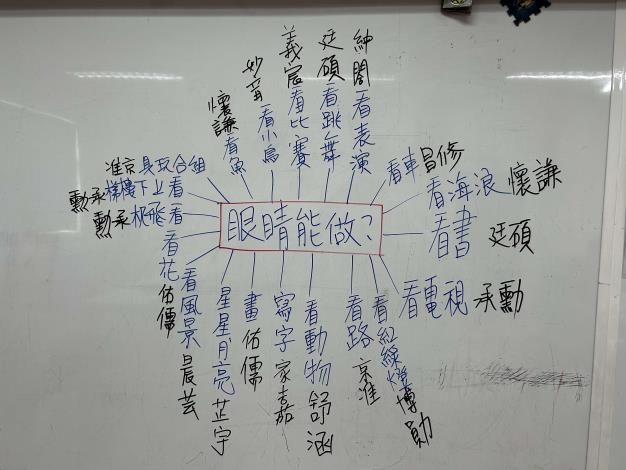 眼睛能做?
懷謙看魚
妙音看小鳥
義宸看比賽
廷碩看跳舞
紳閎看表演
看車昌修
看海浪 懷謙
看書 廷碩
看電視 承勳
看紅綠燈博勛
看路 京淮
看動物舒涵
寫字家嘉
畫佑儒
星星月亮芷宇
看風景晨芸
看花佑儒
看飛机承勳
看上下樓梯承勳
組合玩具京淮